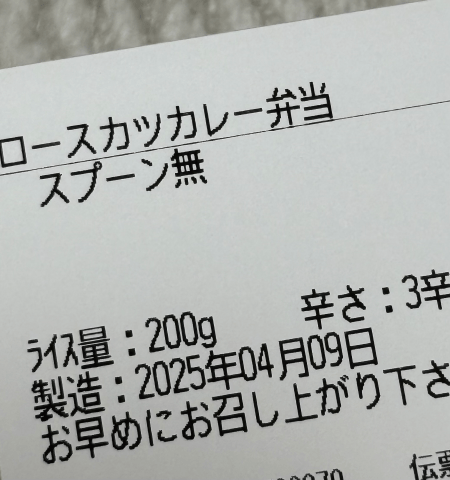 ロースカツカレー弁当
スプーン無
ﾗｲｽ量：200g
辛さ：3辛
製造：2025年04月09日
お早めにお召し上がり下さ
伝票